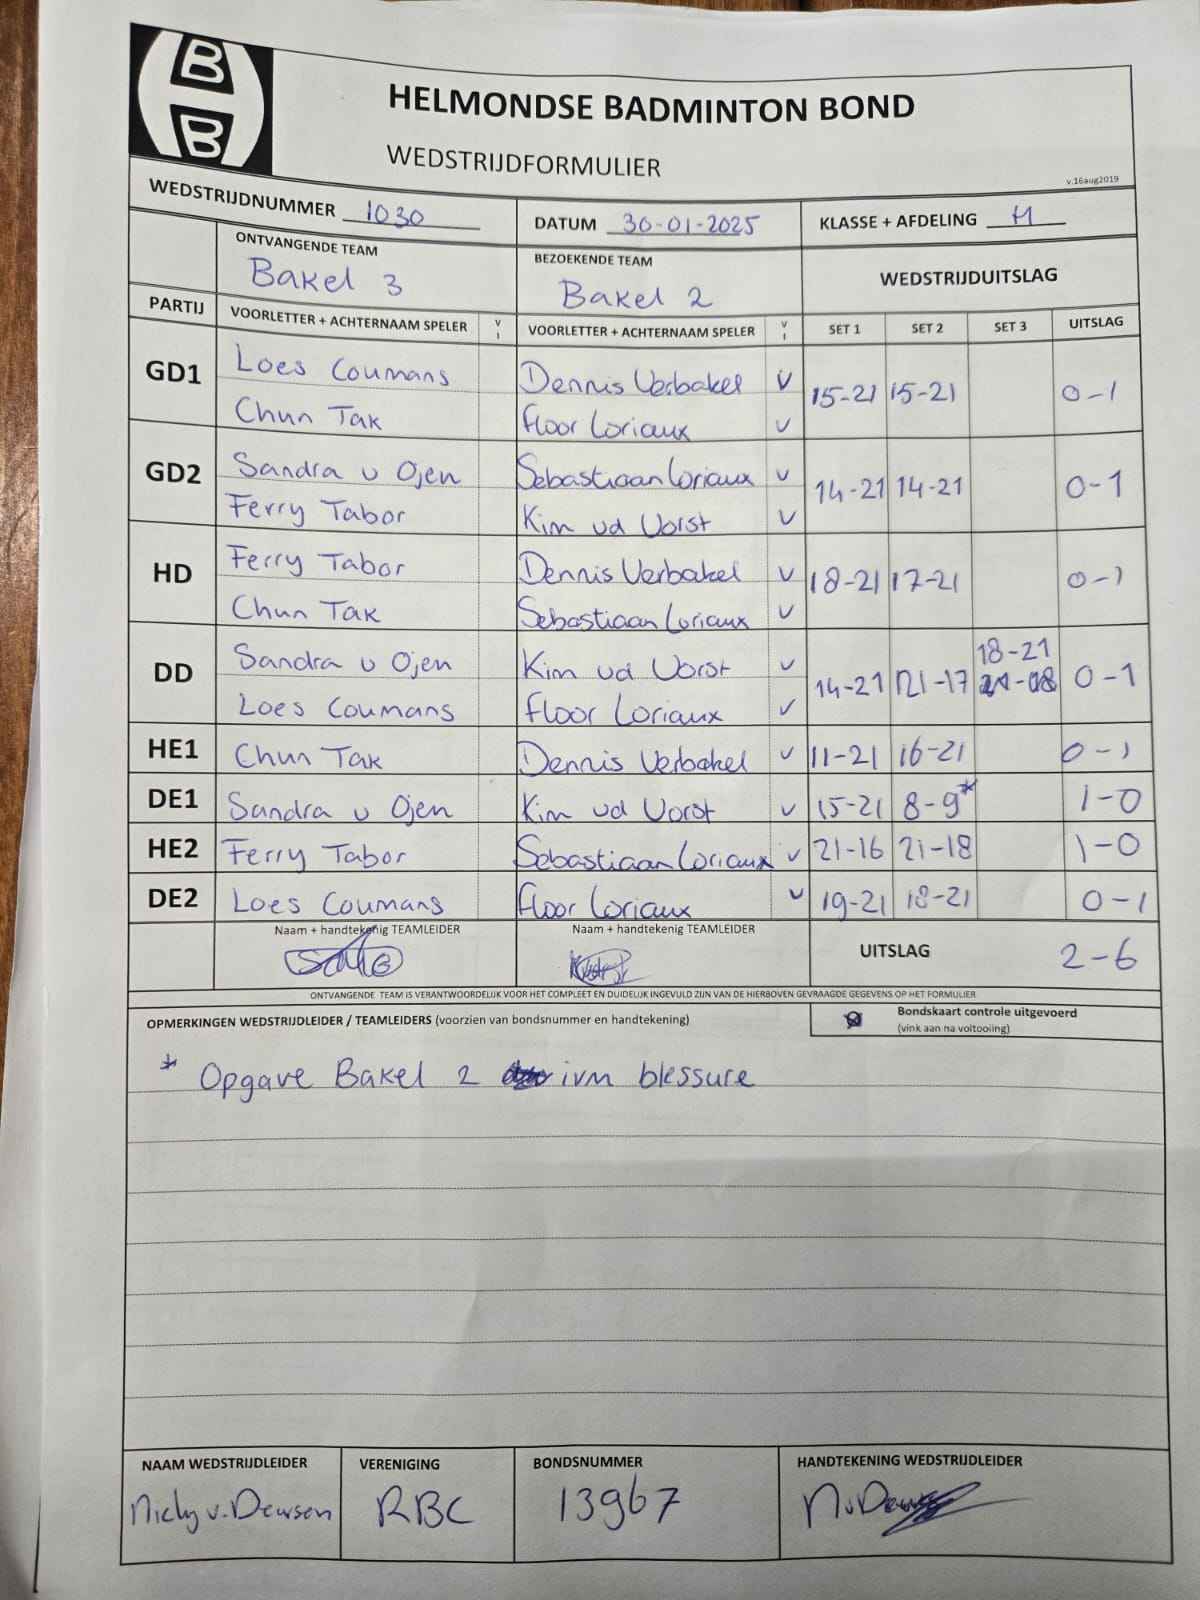 B
B
HELMONDSE BADMINTON BOND
WEDSTRIJDFORMULIER
v.16aug2019
WEDSTRIJDNUMMER 1030 DATUM 30-01-2025 KLASSE + AFDELING H
ONTVANGENDE TEAM BEZOEKENDE TEAM WEDSTRIJDUITSLAG
Bakel 3 Bakel 2
PARTIJ VOORLETTER + ACHTERNAAM SPELER V I VOORLETTER + ACHTERNAAM SPELER V I SET 1 SET 2 SET 3 UITSLAG
GD1 Loes Coumans Dennis Verbakel v 15-21 15-21 0-1
Chun Tak Floor Loriaux v
GD2 Sandra v Ojen Sebastiaan Loriaux v 14-21 14-21 0-1
Ferry Tabor Kim vd Vorst v
HD Ferry Tabor Dennis Verbakel v 18-21 17-21 0-1
Chun Tak Sebastiaan Loriaux v
DD Sandra v Ojen Kim vd Vorst v 14-21 21-17 18-21 0-1
Loes Coumans Floor Loriaux v
HE1 Chun Tak Dennis Verbakel v 11-21 16-21 0-1
DE1 Sandra v Ojen Kim vd Vorst v 15-21 8-9* 1-0
HE2 Ferry Tabor Sebastiaan Loriaux v 21-16 21-18 1-0
DE2 Loes Coumans Floor Loriaux v 19-21 18-21 0-1
Naam + handtekenig TEAMLEIDER Naam + handtekenig TEAMLEIDER UITSLAG 2-6
ONTVANGENDE TEAM IS VERANTWOORDELIJK VOOR HET COMPLEET EN DUIDELIJK INGEVULD ZIJN VAN DE HIERBOVEN GEVRAAGDE GEGEVENS OP HET FORMULIER
OPMERKINGEN WEDSTRIJDLEIDER / TEAMLEIDERS (voorzien van bondsnummer en handtekening) Bondskaart controle uitgevoerd
(vink aan na voltooiing)
* Opgave Bakel 2 ivm blessure
NAAM WEDSTRIJDLEIDER VERENIGING BONDSNUMMER HANDTEKENING WEDSTRIJDLEIDER
RBC 13967